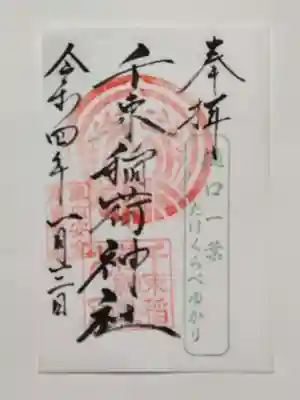 奉拝
樋口一葉
たけくらべゆかり
千束稲荷神社
令和四年